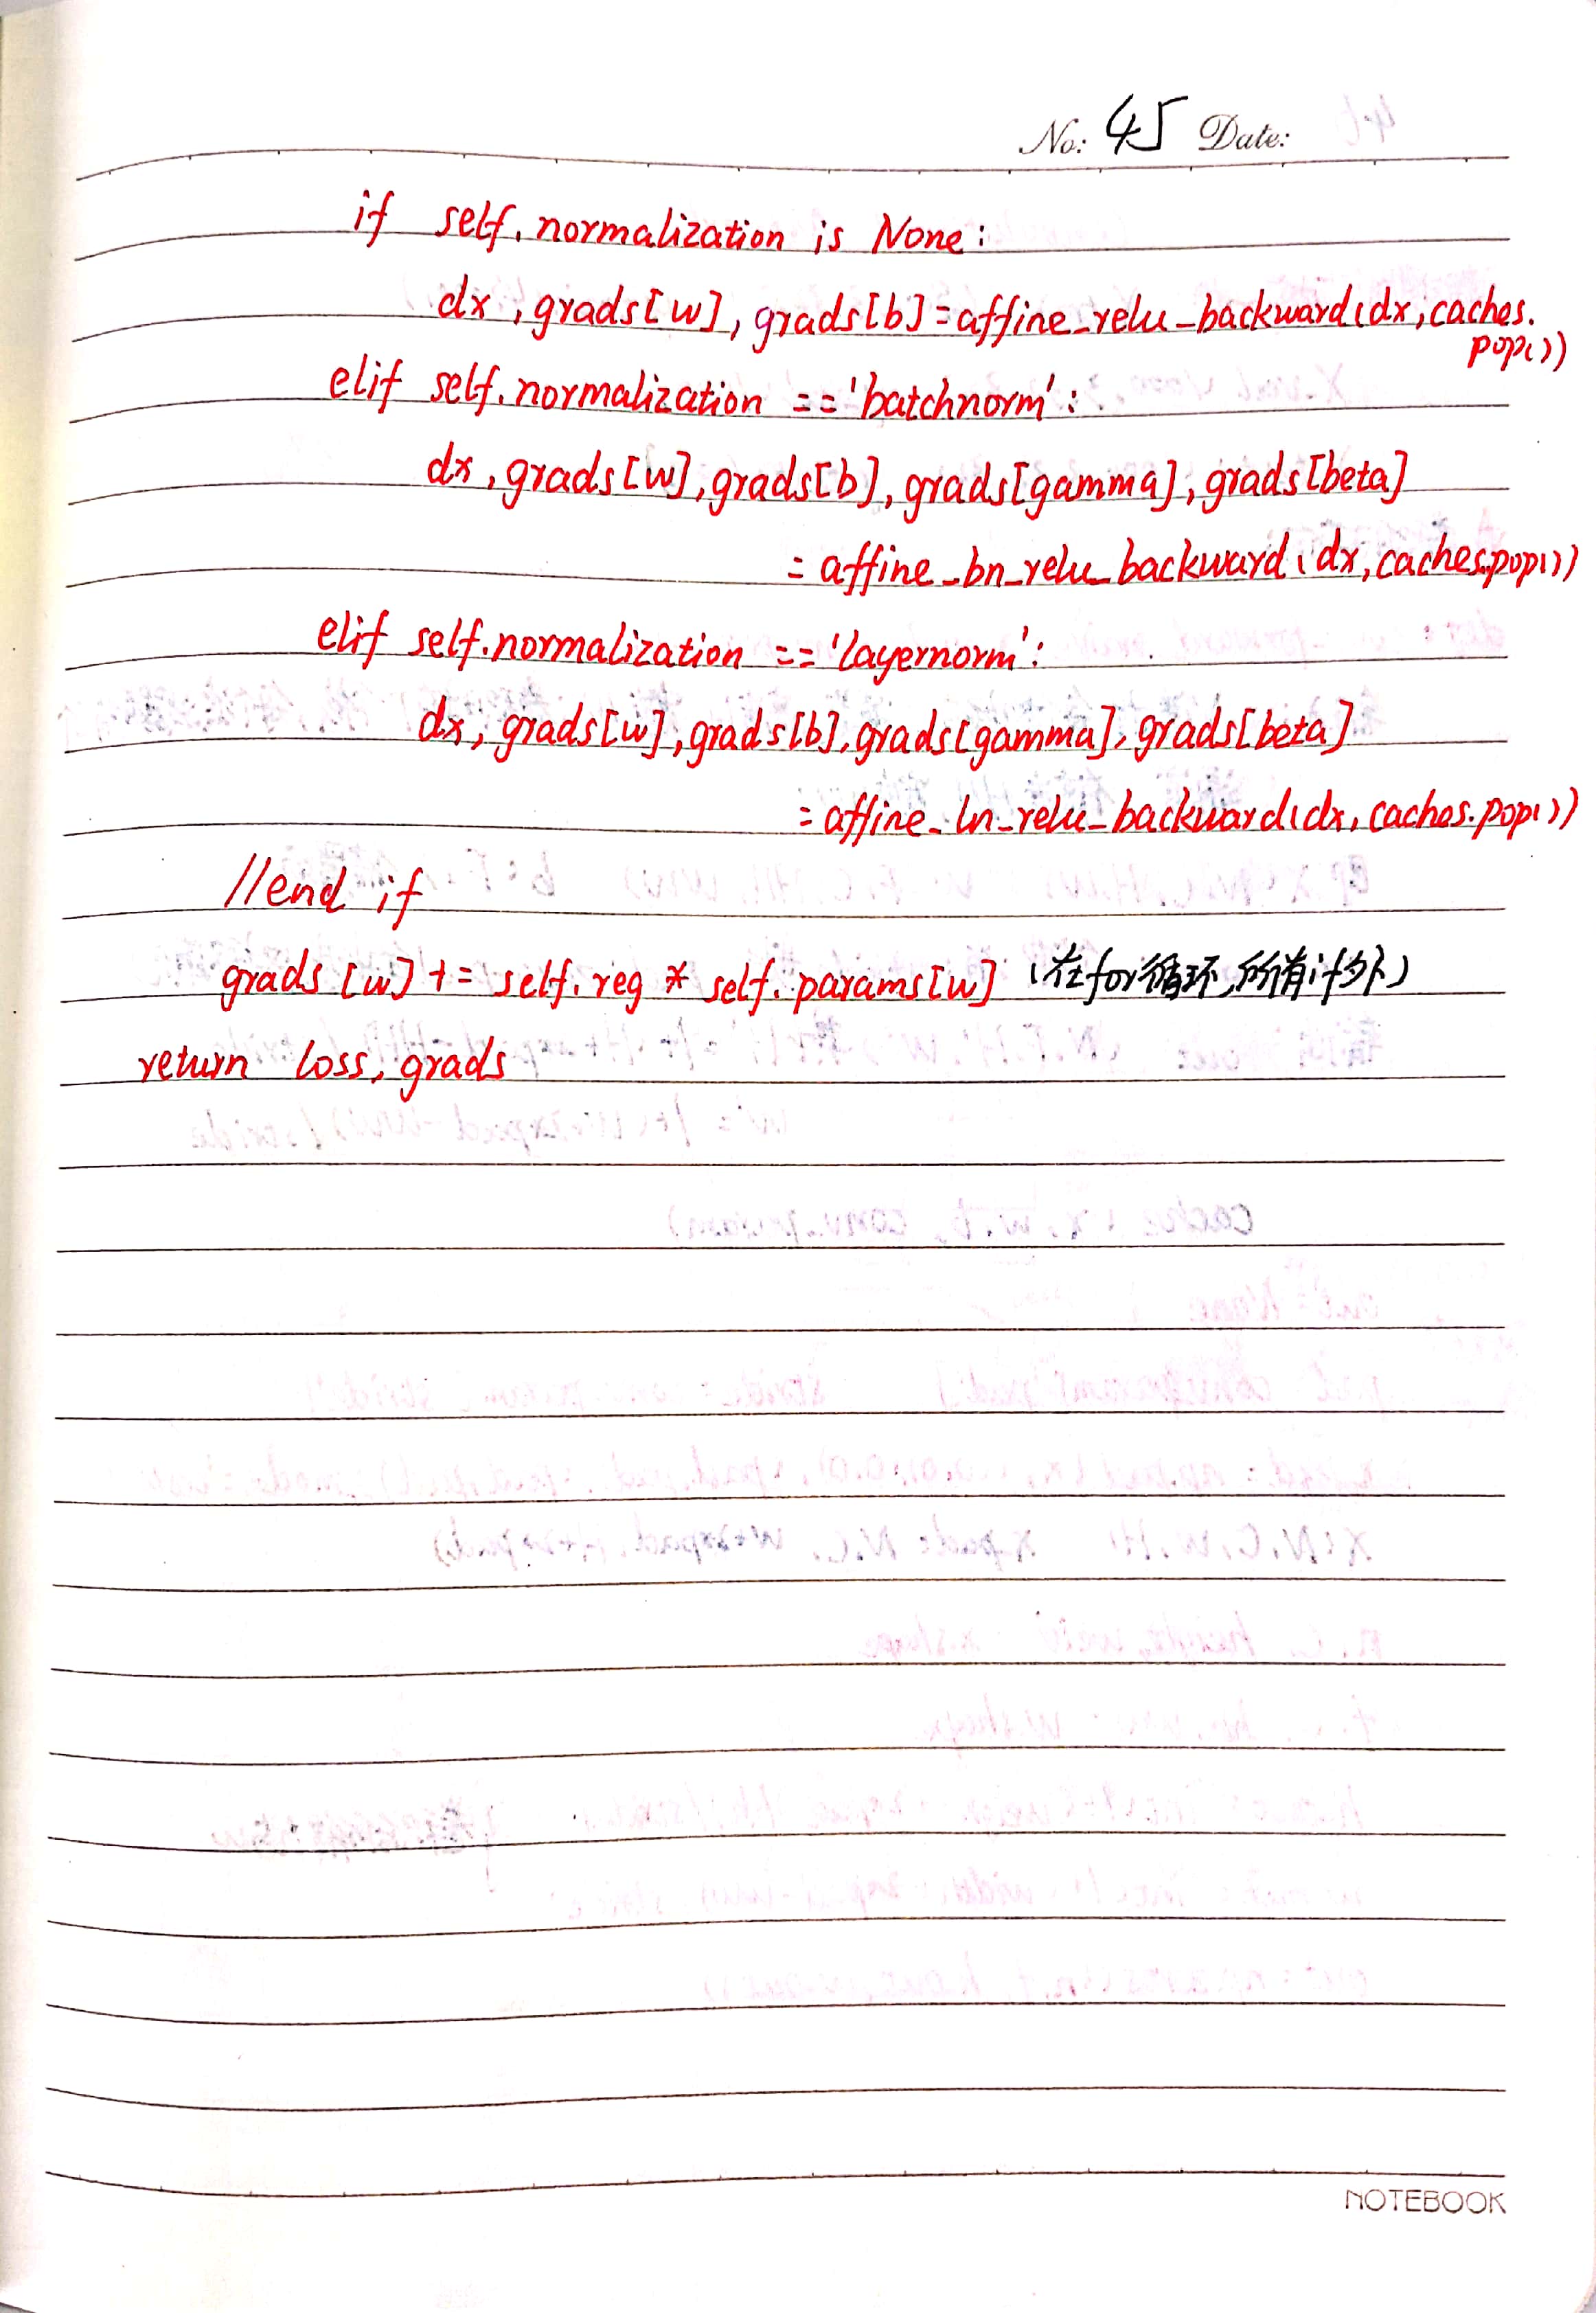 No: 45 Date:
if self.normalization is None:
dx, grads[w], grads[b]=affine_relu_backward(dx, caches.
pop())
elif self.normalization =='batchnorm':
dx, grads[w], grads[b], grads[gamma], grads[beta]
= affine_bn_relu_backward(dx, caches.pop())
elif self.normalization =='layernorm':
dx, grads[w], grads[b], grads[gamma], grads[beta]
= affine_ln_relu_backward(dx, caches.pop())
//end if
grads[w] += self.reg * self.params[w] (在for循环,所有if外)
return loss, grads
NOTEBOOK